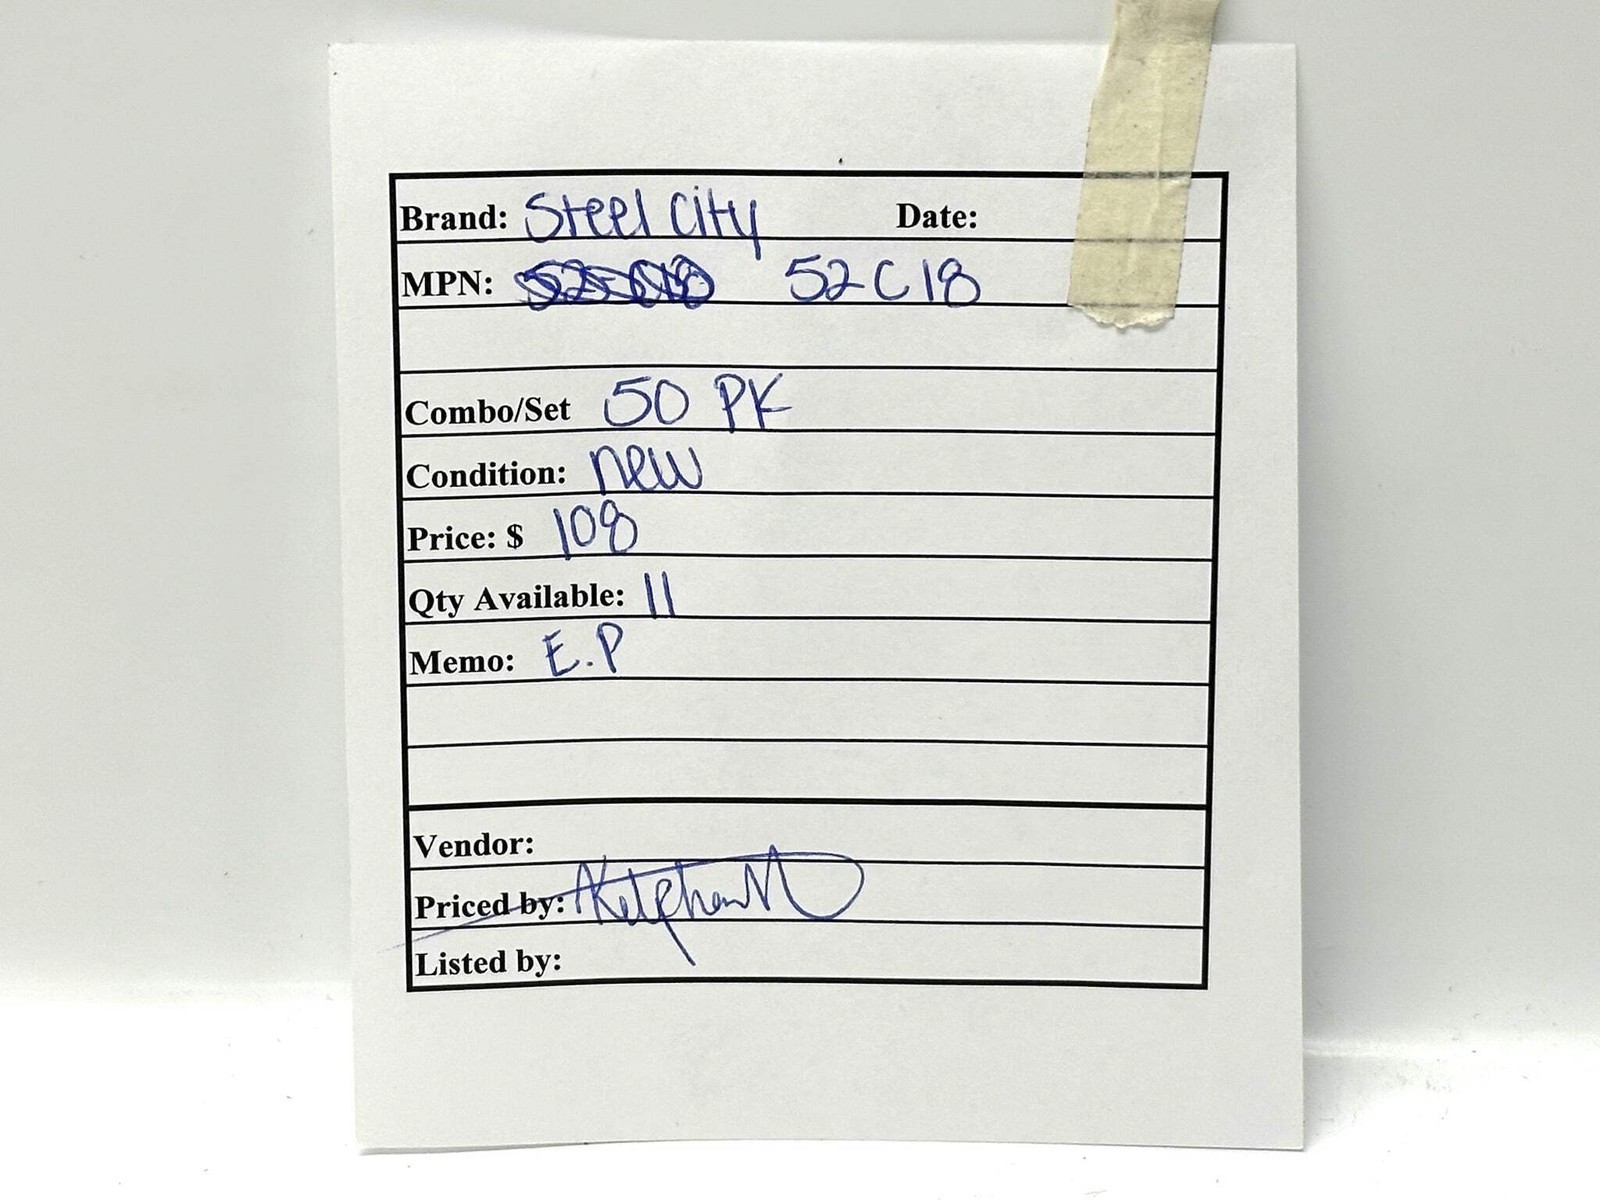 Brand: Steel City Date:
MPN: 52C18
Combo/Set 50 PK
Condition: new
Price: $ 108
Qty Available: 11
Memo: E.P
Vendor:
Priced by:
Listed by: